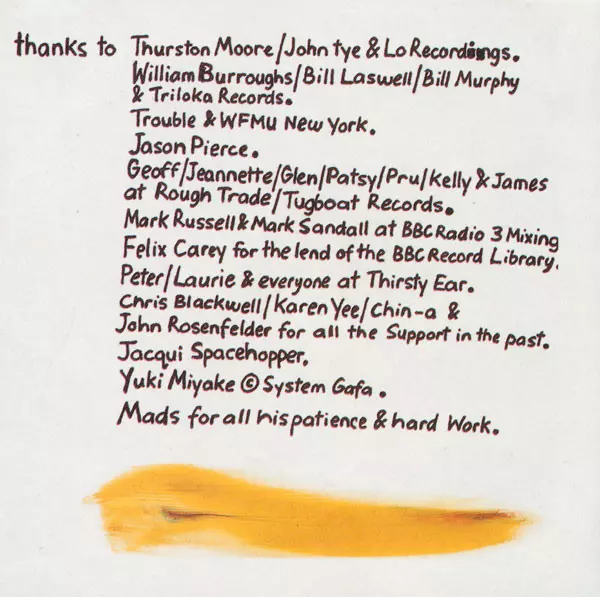 thanks to Thurston Moore/John tye & Lo Recordings.
William Burroughs/Bill Laswell/Bill Murphy
& Triloka Records.
Trouble & WFMU New York.
Jason Pierce.
Geoff/Jeannette/Glen/Patsy/Pru/Kelly & James
at Rough Trade/Tugboat Records.
Mark Russell & Mark Sandall at BBC Radio 3 Mixing
Felix Carey for the lend of the BBC Record Library.
Peter/Laurie & everyone at Thirsty Ear.
Chris Blackwell/Karen Yee/Chin-a &
John Rosenfelder for all the Support in the past.
Jacqui Spacehopper.
Yuki Miyake © System Gafa.
Mads for all his patience & hard Work.